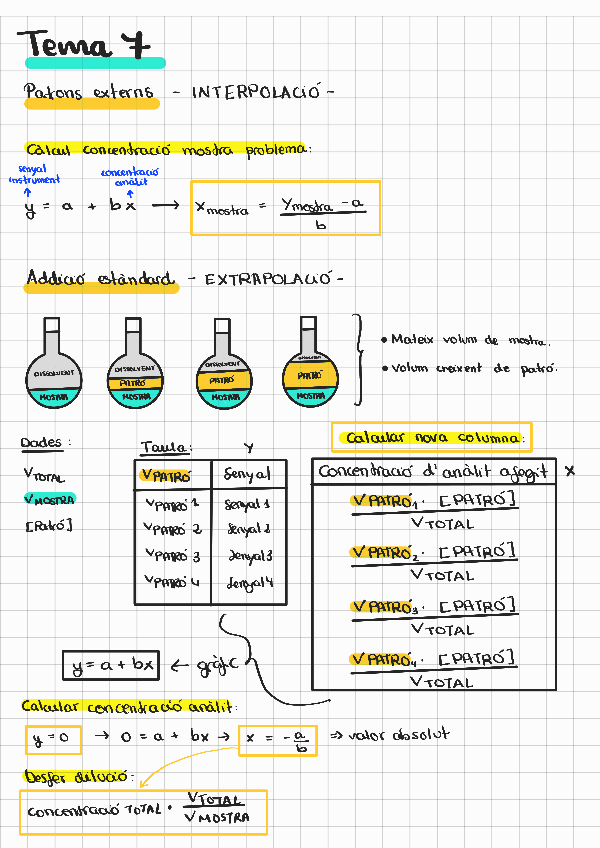 Tema 7
Patrons externs - INTERPOLACIÓ -
Càlcul concentració mostra problema:
senyal instrument
concentració anàlit
y = a + bx → x mostra = (y mostra - a) / b
Addició estàndard - EXTRAPOLACIÓ -
DISSOLVENT
MOSTRA
DISSOLVENT
PATRÓ
MOSTRA
DISSOLVENT
PATRÓ
MOSTRA
DISSOLVENT
PATRÓ
MOSTRA
• Mateix volum de mostra.
• Volum creixent de patró.
Dades:
V TOTAL
V MOSTRA
[Patró]
Taula: Y
V PATRÓ Senyal
V PATRÓ 1 Senyal 1
V PATRÓ 2 Senyal 2
V PATRÓ 3 Senyal 3
V PATRÓ 4 Senyal 4
Calcular nova columna:
Concentració d'anàlit afegit X
V PATRÓ₁ · [PATRÓ] / V TOTAL
V PATRÓ₂ · [PATRÓ] / V TOTAL
V PATRÓ₃ · [PATRÓ] / V TOTAL
V PATRÓ₄ · [PATRÓ] / V TOTAL
y = a + bx ← gràfic
Calcular concentració anàlit:
y = 0 → 0 = a + bx → x = -a/b ⇒ valor absolut
Desfer dilució:
concentració TOTAL · V TOTAL / V MOSTRA